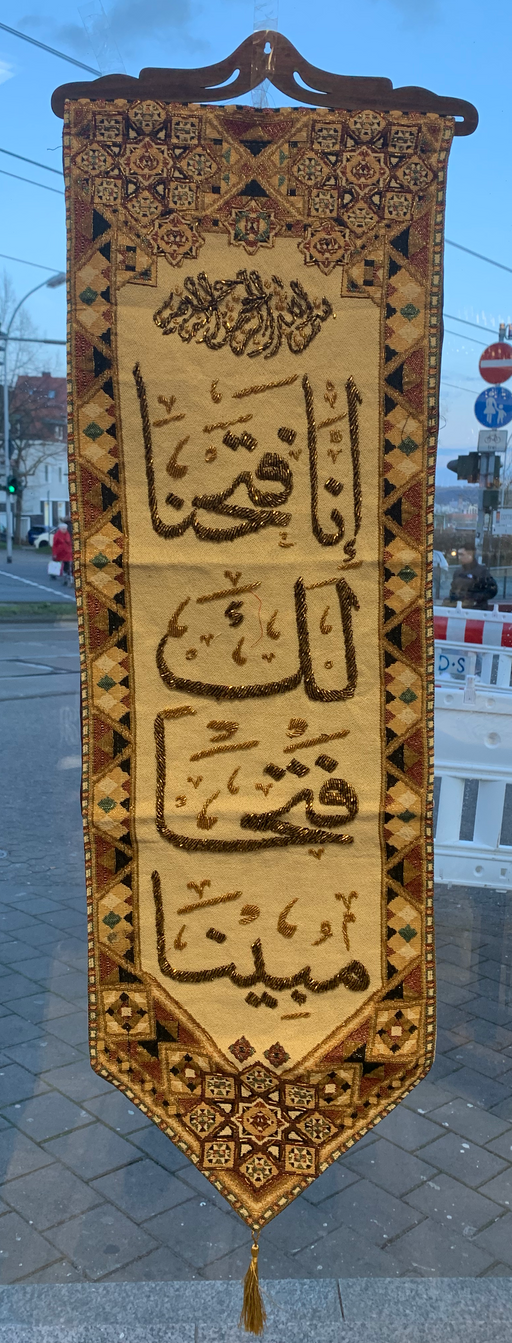 بسم الله الرحمن الرحيم
إنا فتحنا
لك
فتحا
مبينا
D·S